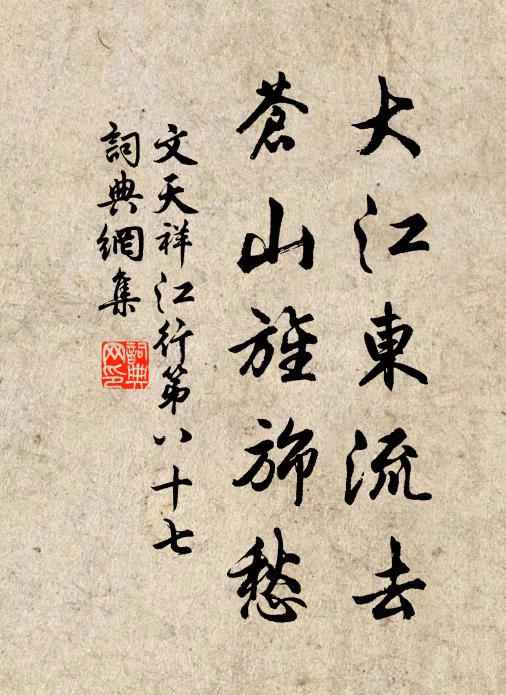 大江東流去
蒼山旌旆愁
文天祥江行第八十七
詞典網集
詞典網印